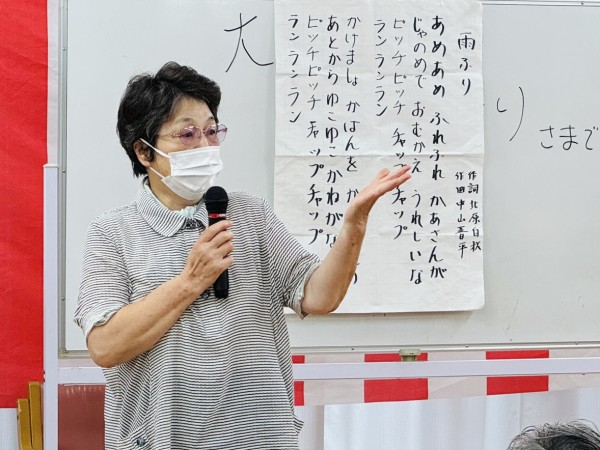 り
さまで
雨ふり
作詞 北原白秋
作曲 中山晋平
あめあめ ふれふれ かあさんが
じゃのめで おむかえ うれしいな
ピッチピッチ チャップチャップ
ランランラン
かけましょ かばんを か
あとから ゆこゆこ かねがな
ピッチピッチ チャップチャップ
ランランラン
大